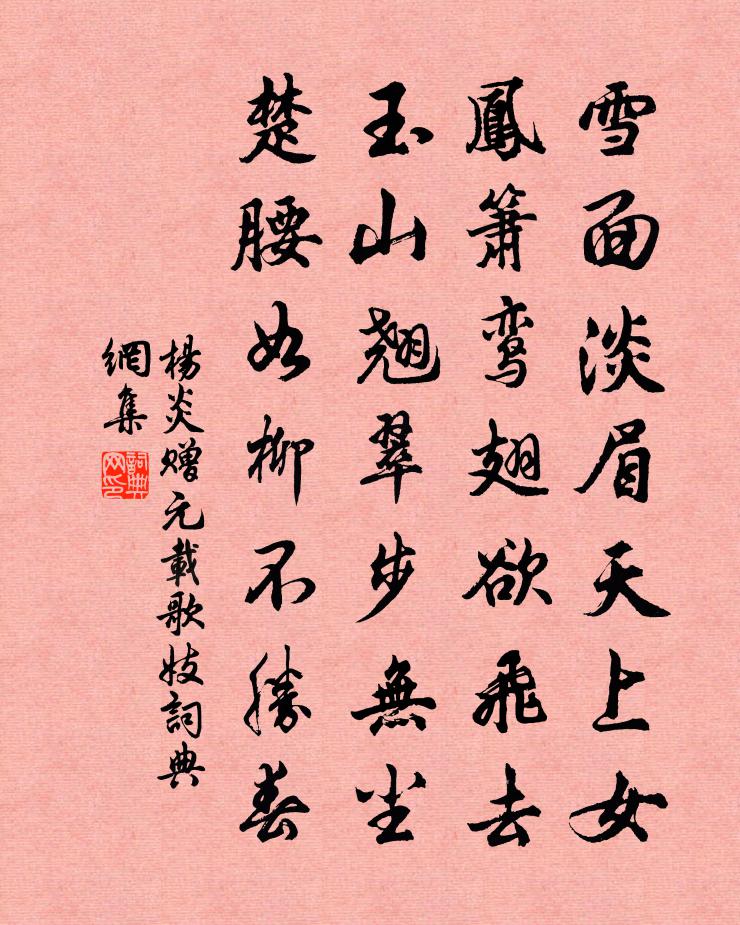 雪面淡眉天上女
鳳簫鸾翅欲飛去
玉山翹翠步無尘
楚腰如柳不勝春
楊炎赠元載歌妓詞典
網集
詞典网印